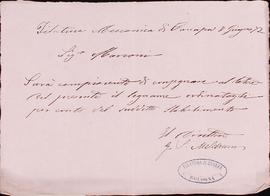 Filatura Meccanica di Canapa 8 Giugno 72
Sig.r Marconi
Sarà compiacente di consegnare al latore
del presente il legname ordinatogli
per conto del suddetto Stabilimento
Il Direttore
G.
FILATURA DI CANAPA
BOLOGNA